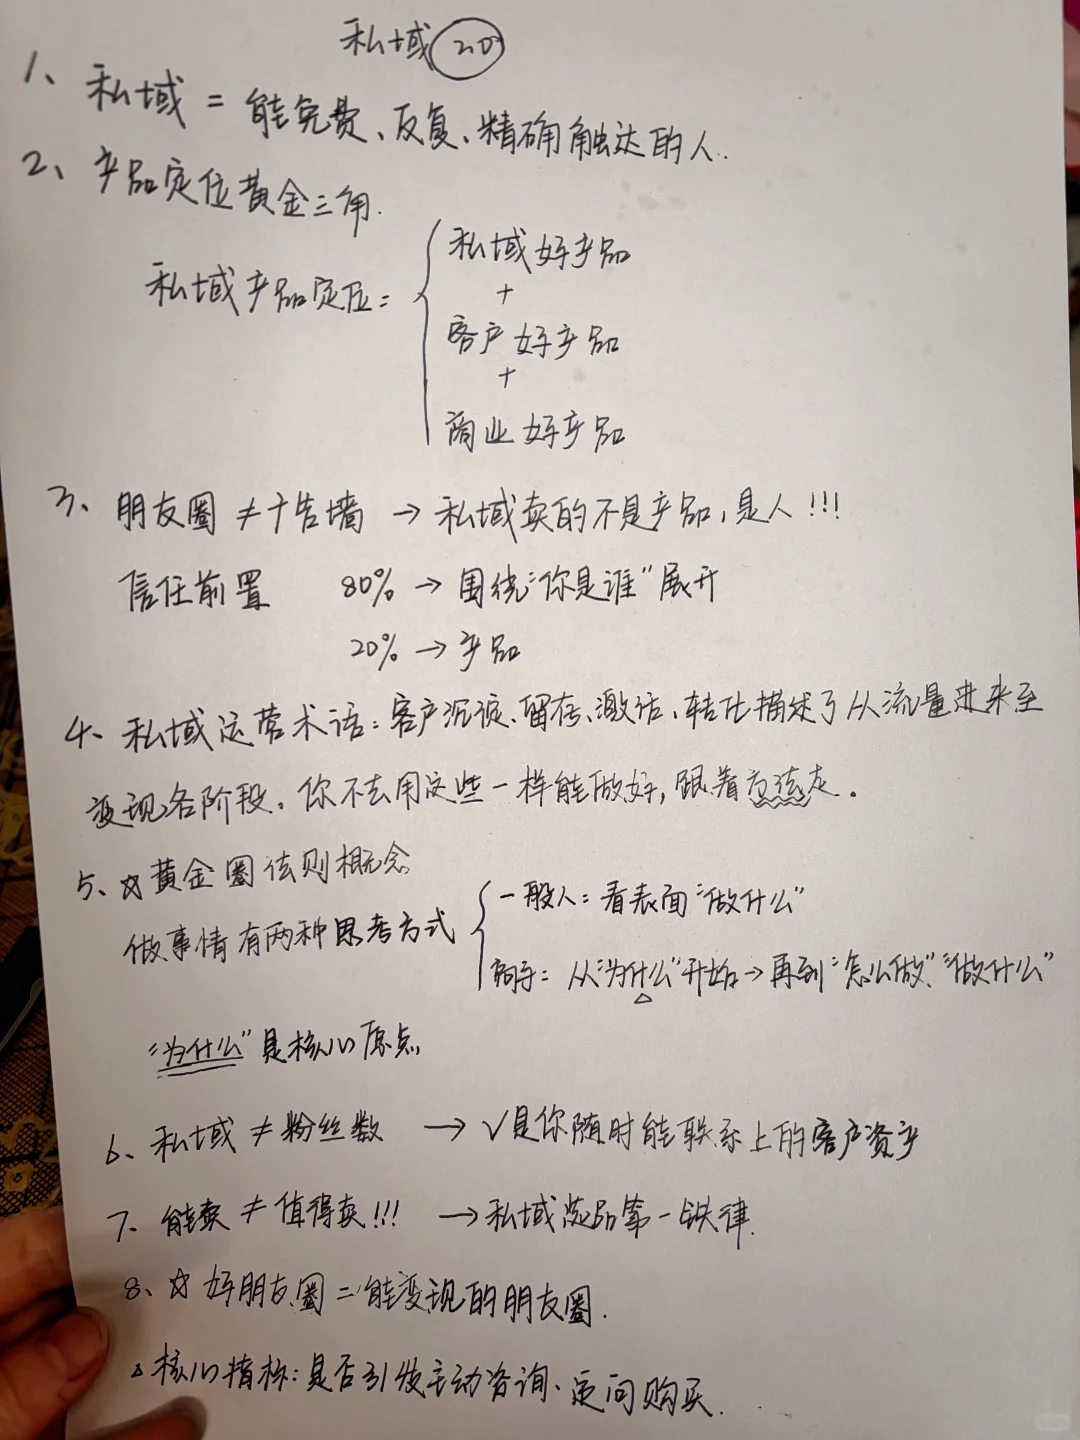 私域 2.0
1、私域 = 能免费、反复、精确触达的人.
2、产品定位黄金三角.
私域好产品
+
私域产品定位=
客户好产品
+
商业好产品
3、朋友圈 ≠ 广告墙 → 私域卖的不是产品,是人!!!
信任前置 80% → 围绕"你是谁"展开
20% → 产品
4、私域运营术语:客户沉淀、留存、激活、转化描述了从流量进来至
变现各阶段。你不去用这些一样能做好,跟着 走。
5、☆黄金圈法则概念
一般人:看表面"做什么"
做事情有两种思考方式
高手:从"为什么"开始→再到"怎么做""做什么"
"为什么"是核心原点
6、私域 ≠ 粉丝数 → √是你随时能联系上的客户资产
7、能卖 ≠ 值得卖!!! → 私域选品第一铁律.
8、☆好朋友圈 = 能变现的朋友圈.
△核心指标:是否引发主动咨询、 购买.